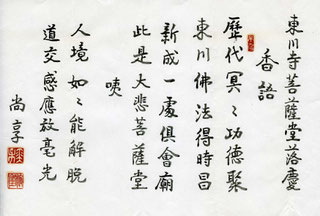 東川寺菩薩堂落慶
香語
歷代冥〻功德聚
東川佛法得時昌
新成一處俱會廟
此是大悲菩薩堂
咦
人境如〻能解脫
道交感應放毫光
尚享